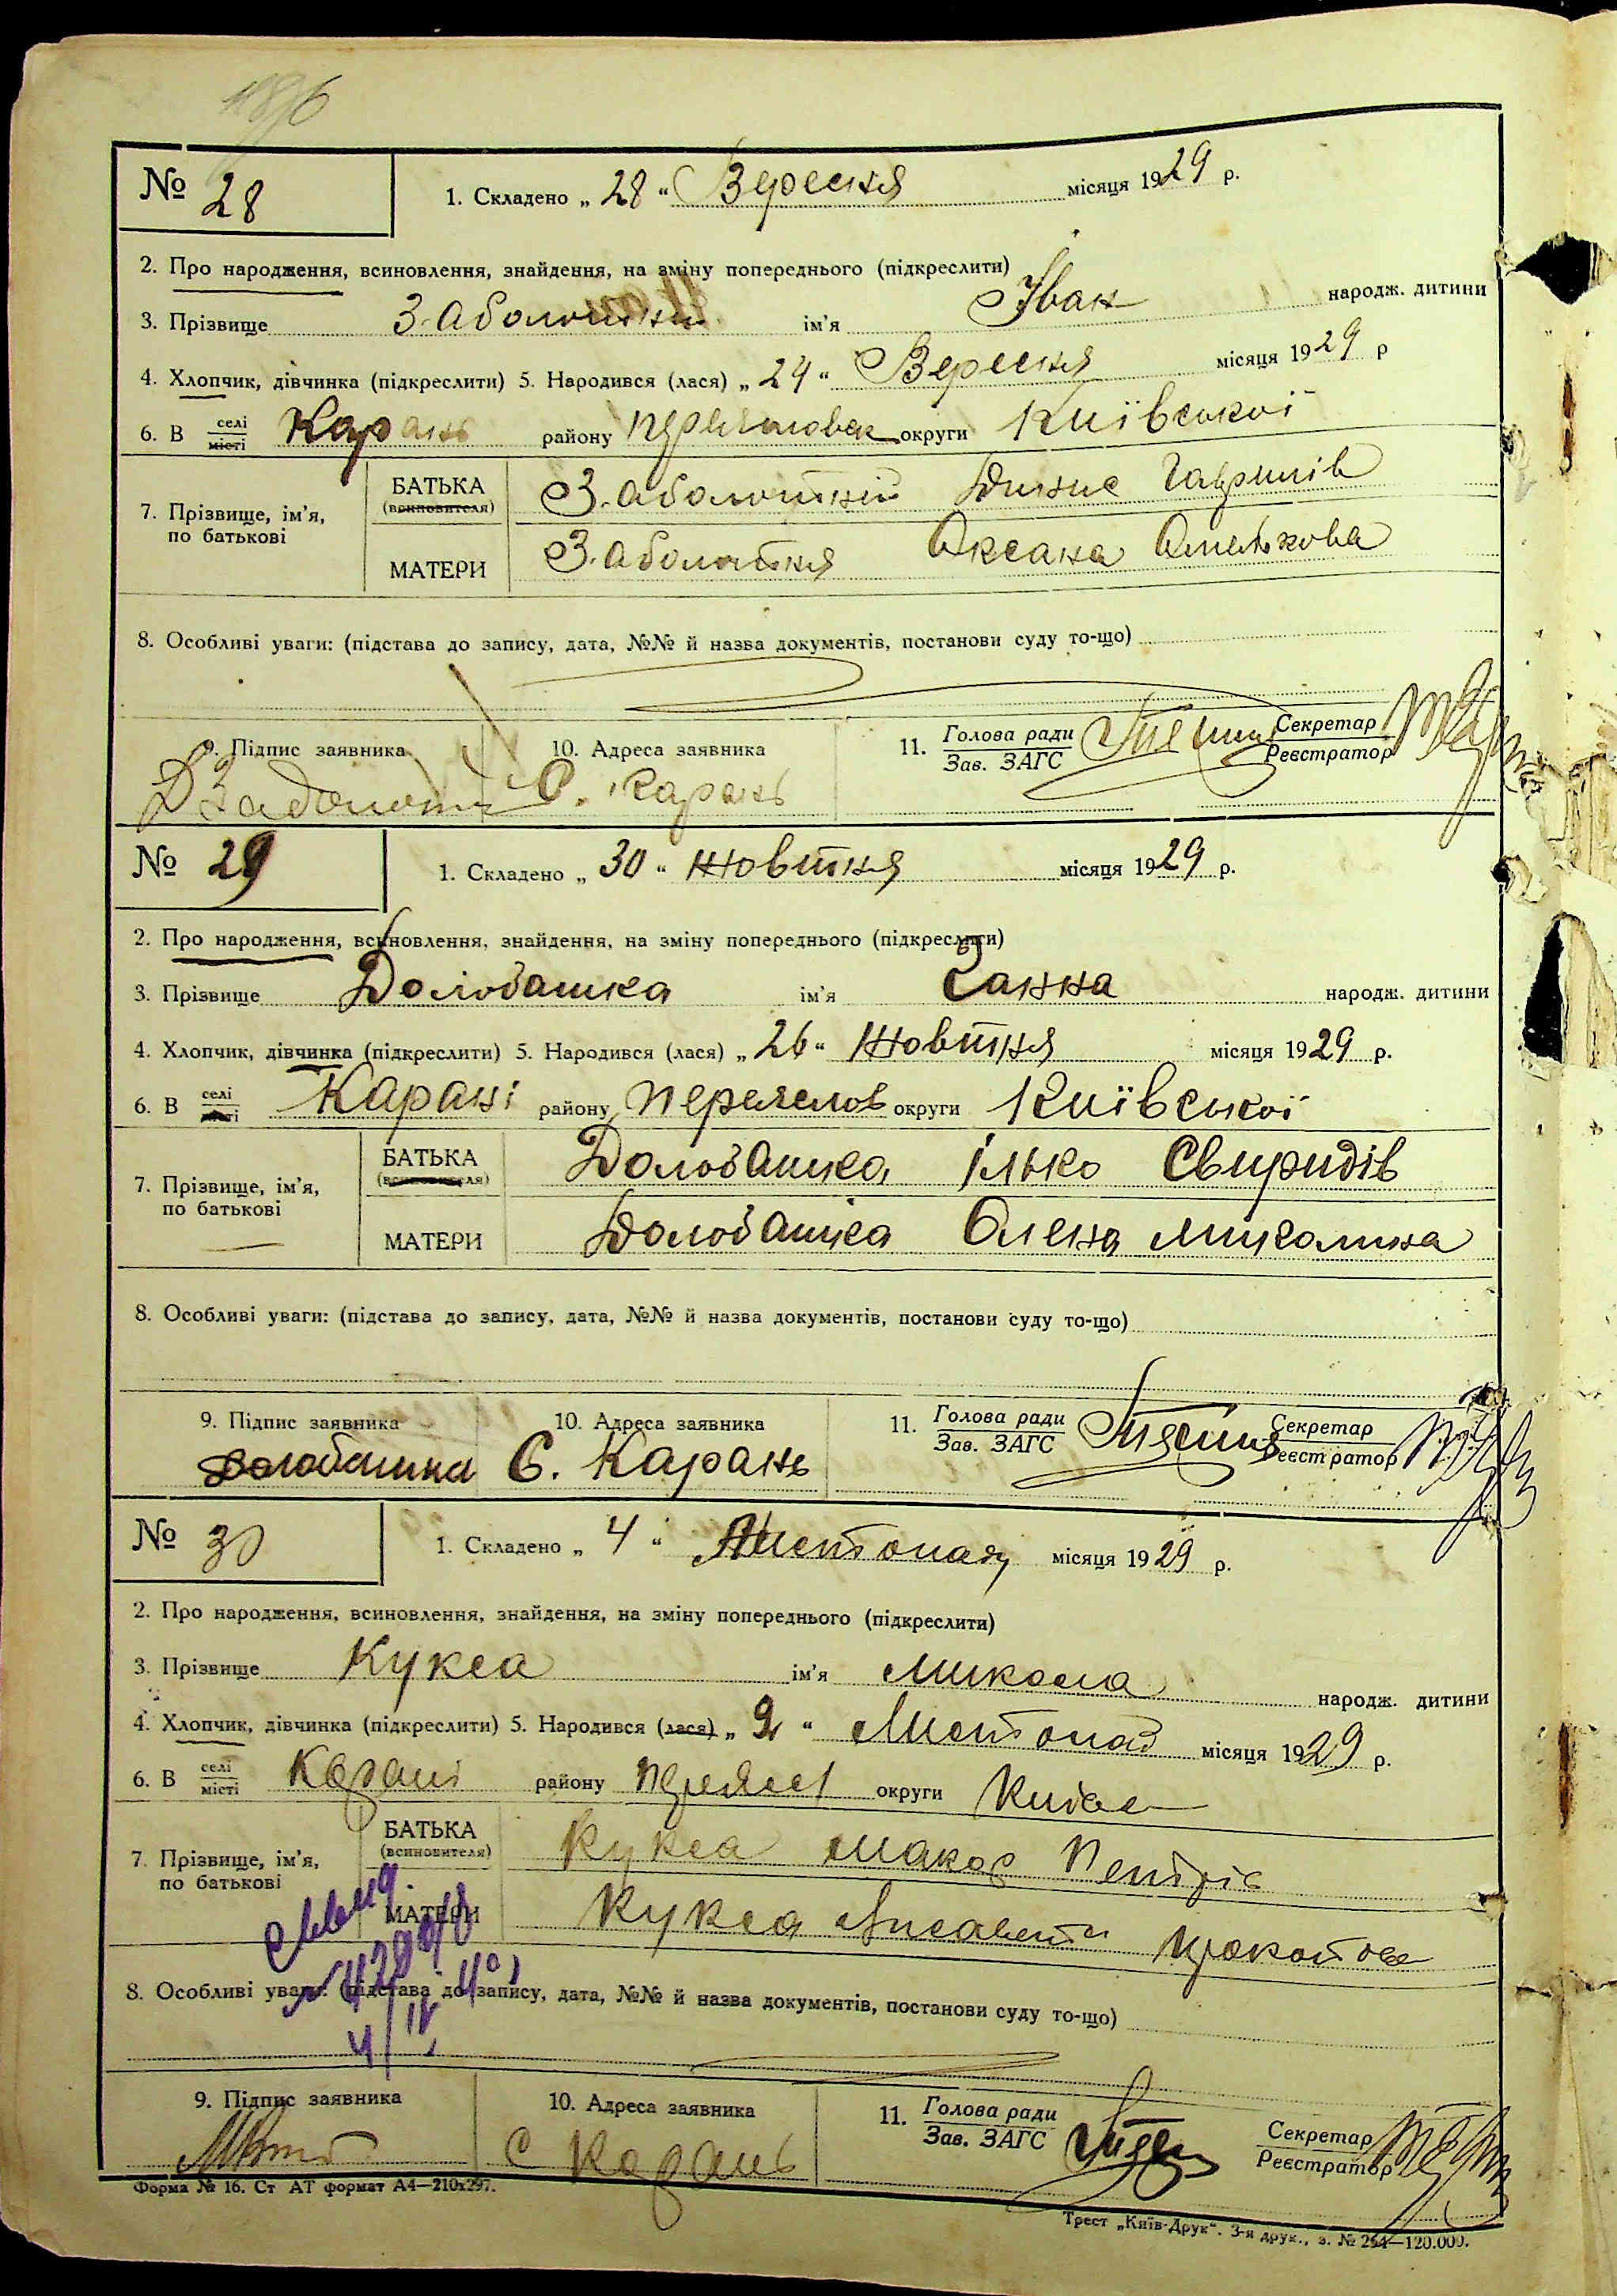 № 28 1. Складено „ 28 “ Вересня місяця 1929 р.
2. Про народження, всиновлення, знайдення, на зміну попереднього (підкреслити)
3. Прізвище Заболотний ім'я Іван народж. дитини
4. Хлопчик, дівчинка (підкреслити) 5. Народився (лася) „ 24 “ Вересня місяця 1929 р
6. В селі місті Карань району округи Київської
7. Прізвище, ім'я, по батькові
БАТЬКА (всиновителя) Заболотний Гаврилів
МАТЕРИ Заболотня Оксана Омелькова
8. Особливі уваги: (підстава до запису, дата, №№ й назва документів, постанови суду то-що)
9. Підпис заявника 10. Адреса заявника 11. Голова ради Зав. ЗАГС Секретар Реєстратор
С. Карань
№ 29 1. Складено „ 30 “ Жовтня місяця 1929 р.
2. Про народження, всиновлення, знайдення, на зміну попереднього (підкреслити)
3. Прізвище Долобашка ім'я Ганна народж. дитини
4. Хлопчик, дівчинка (підкреслити) 5. Народився (лася) „ 26 “ Жовтня місяця 1929 р.
6. В селі місті Карані району Переяслов округи Київської
7. Прізвище, ім'я, по батькові
БАТЬКА (всиновителя) Долобашка Ілько Свиридів
МАТЕРИ Долобашка Олена Миколина
8. Особливі уваги: (підстава до запису, дата, №№ й назва документів, постанови суду то-що)
9. Підпис заявника 10. Адреса заявника 11. Голова ради Зав. ЗАГС Секретар Реєстратор
Долобашка С. Карань
№ 30 1. Складено „ 4 “ Листопаду місяця 1929 р.
2. Про народження, всиновлення, знайдення, на зміну попереднього (підкреслити)
3. Прізвище Кукса ім'я Микола народж. дитини
4. Хлопчик, дівчинка (підкреслити) 5. Народився (лася) „ 2 “ Листопад місяця 1929 р.
6. В селі місті Карані району округи
7. Прізвище, ім'я, по батькові
БАТЬКА (всиновителя) Кукса Макар Петрів
МАТЕРИ Кукса Прокопова
8. Особливі уваги: (підстава до запису, дата, №№ й назва документів, постанови суду то-що)
9. Підпис заявника 10. Адреса заявника 11. Голова ради Зав. ЗАГС Секретар Реєстратор
С Карань
Форма № 16. Ст АТ формат А4—210х297.
Трест „Київ-Друк“. 3-я друк., з. № 254—120.000.